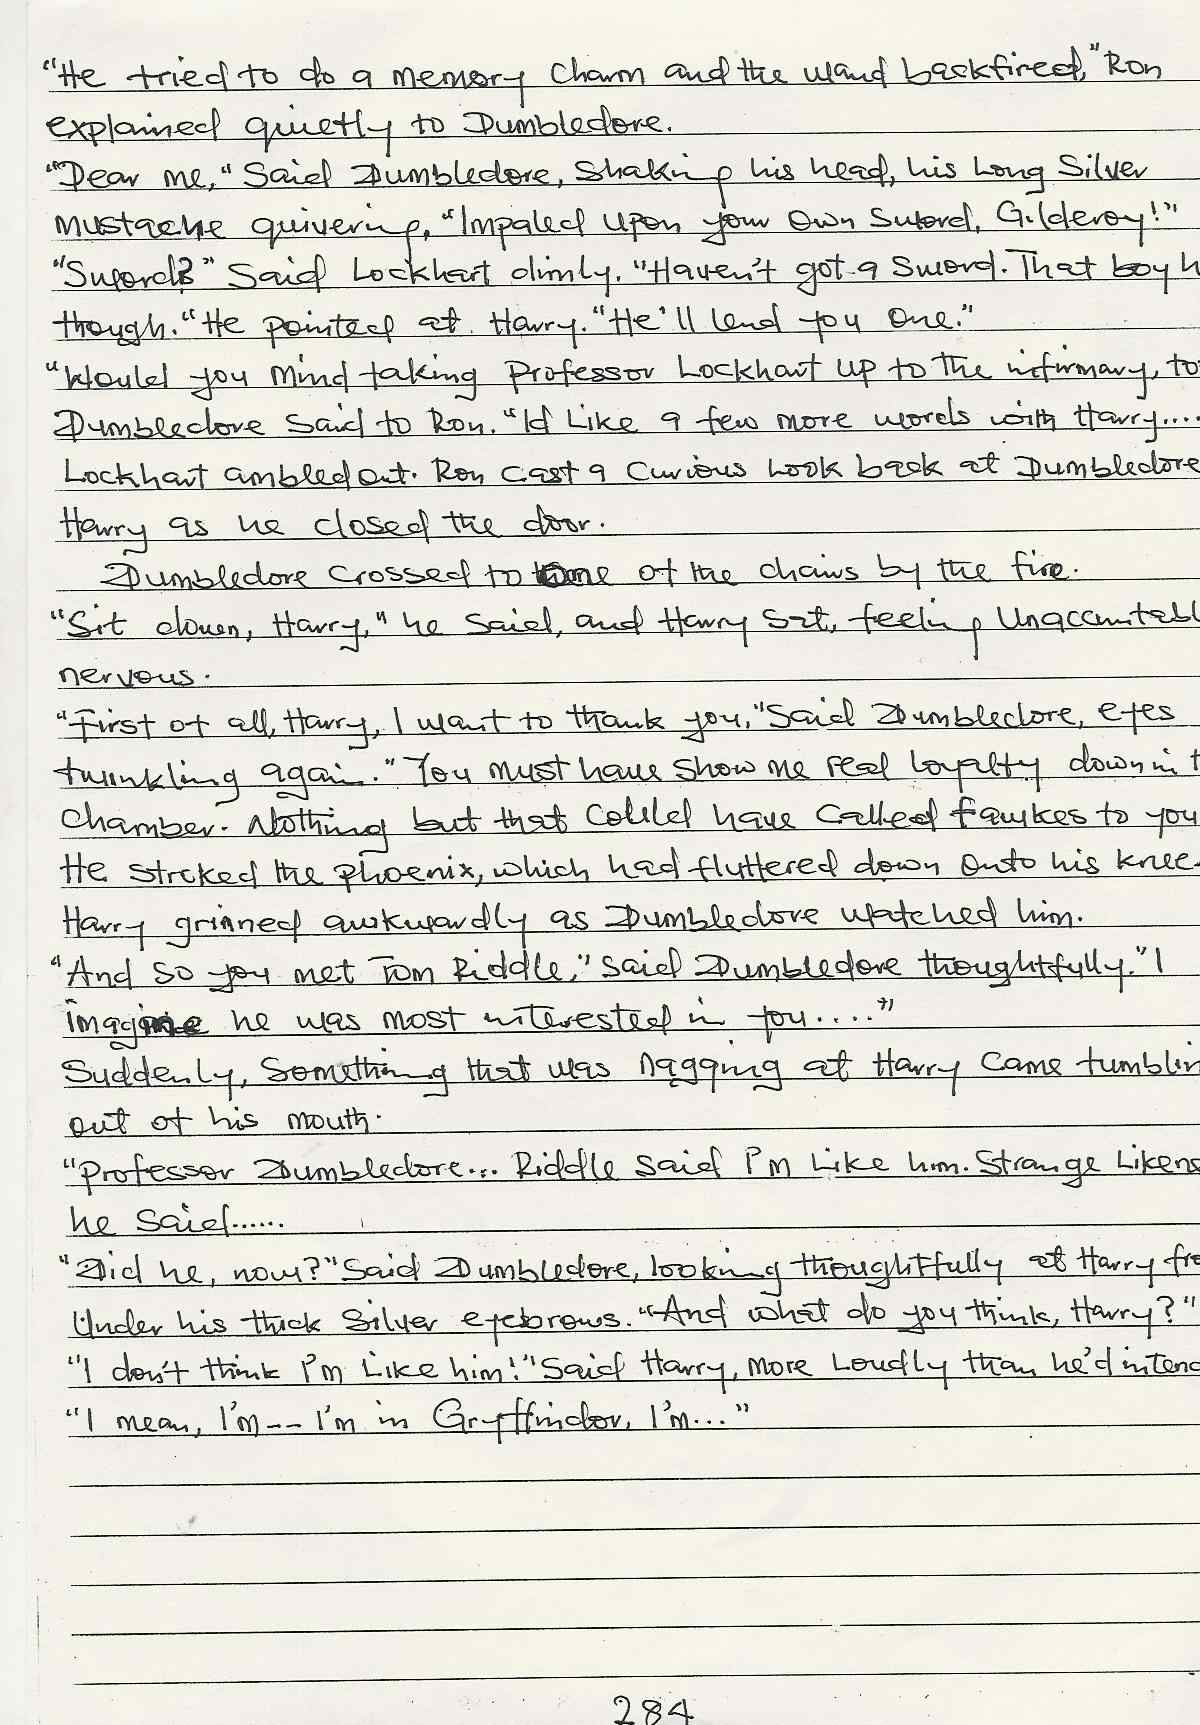 "He tried to do a memory Charm and the wand backfired," Ron
explained quietly to Dumbledore.
"Dear me," Said Dumbledore, Shaking his head, his Long Silver
mustache quivering, "Impaled Upon your Own Sword, Gilderoy!"
"Sword?" Said Lockhart dimly. "Haven't got a Sword. That boy h
though." He pointed at Harry. "He'll lend you One."
"Would you Mind taking Professor Lockhart up to the infirmary, to
Dumbledore Said to Ron. "Id Like a few more words with Harry....
Lockhart ambled out. Ron Cast a Curious Look back at Dumbledore
Harry as he closed the door.
Dumbledore Crossed to one of the chairs by the fire.
"Sit down, Harry," he Said, and Harry Sat, feeling Unaccuntabl
nervous.
"First of all, Harry, I want to thank you," Said Dumbledore, eyes
twinkling again. "You must have show me real Loyalty down in t
Chamber. Nothing but that Could have Called Fawkes to you
He stroked the phoenix, which had fluttered down Onto his knee.
Harry grinned awkwardly as Dumbledore watched him.
"And so you met Tom Riddle," said Dumbledore thoughtfully. "I
imagine he was most interested in you...."
Suddenly, Something that was nagging at Harry Came tumblin
out of his mouth.
"Professor Dumbledore... Riddle said I'm Like him. Strange Likens
he said......
"Did he, now?" Said Dumbledore, looking thoughtfully at Harry fro
Under his thick Silver eyebrows. "And what do you think, Harry?"
"I don't think I'm Like him!" Said Harry, more Loudly than he'd intend
"I mean, I'm-- I'm in Gryffindor, I'm..."
284